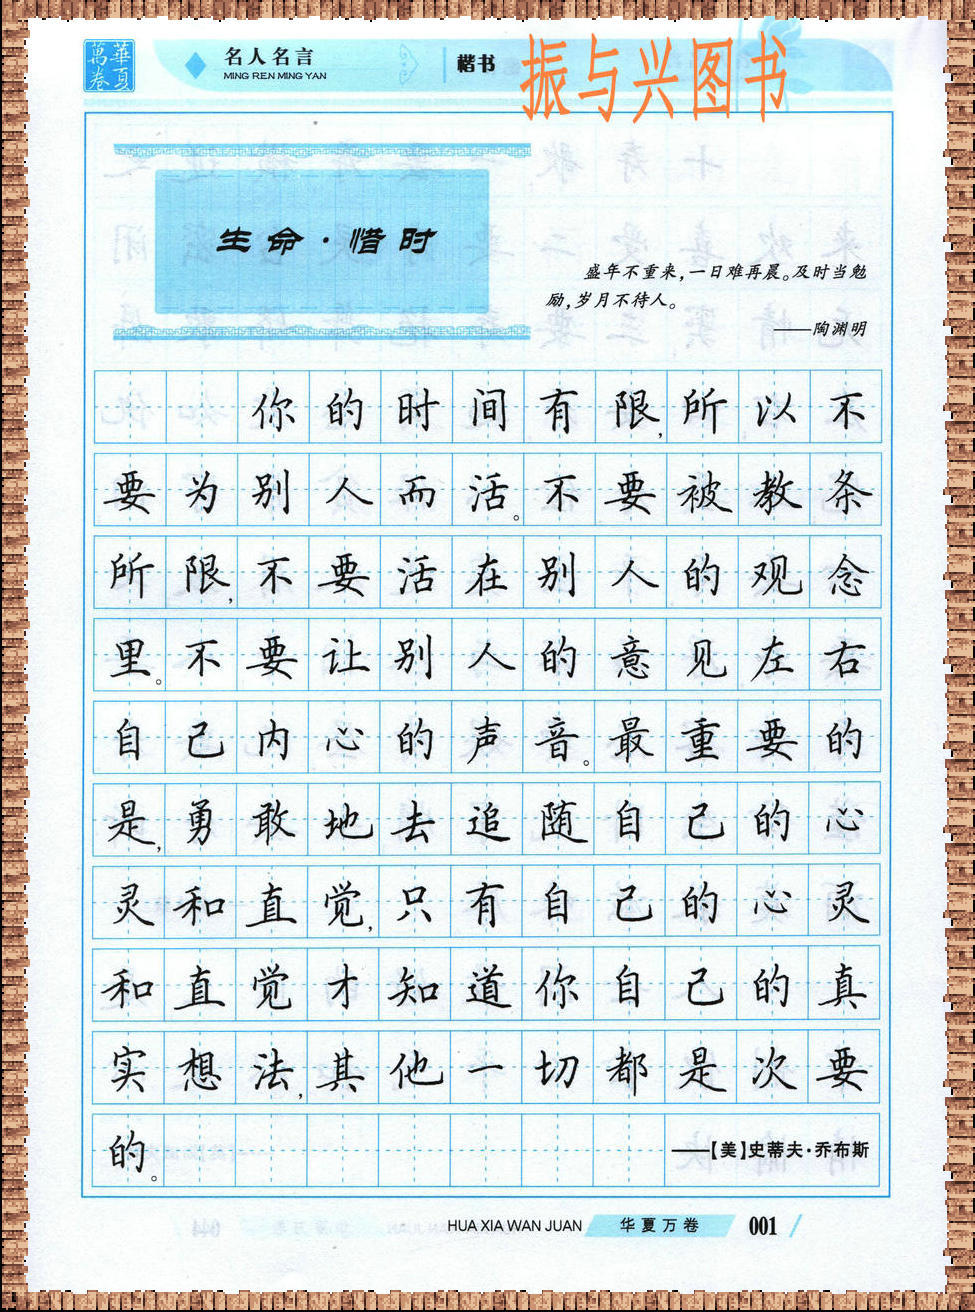 華夏
萬卷
名人名言
MING REN MING YAN
楷书
振与兴图书
生命·惜时
盛年不重来,一日难再晨。及时当勉
励,岁月不待人。
——陶渊明
你的时间有限,所以不
要为别人而活。不要被教条
所限,不要活在别人的观念
里。不要让别人的意见左右
自己内心的声音。最重要的
是,勇敢地去追随自己的心
灵和直觉,只有自己的心灵
和直觉才知道你自己的真
实想法,其他一切都是次要
的。
——【美】史蒂夫·乔布斯
HUA XIA WAN JUAN
华夏万卷
001